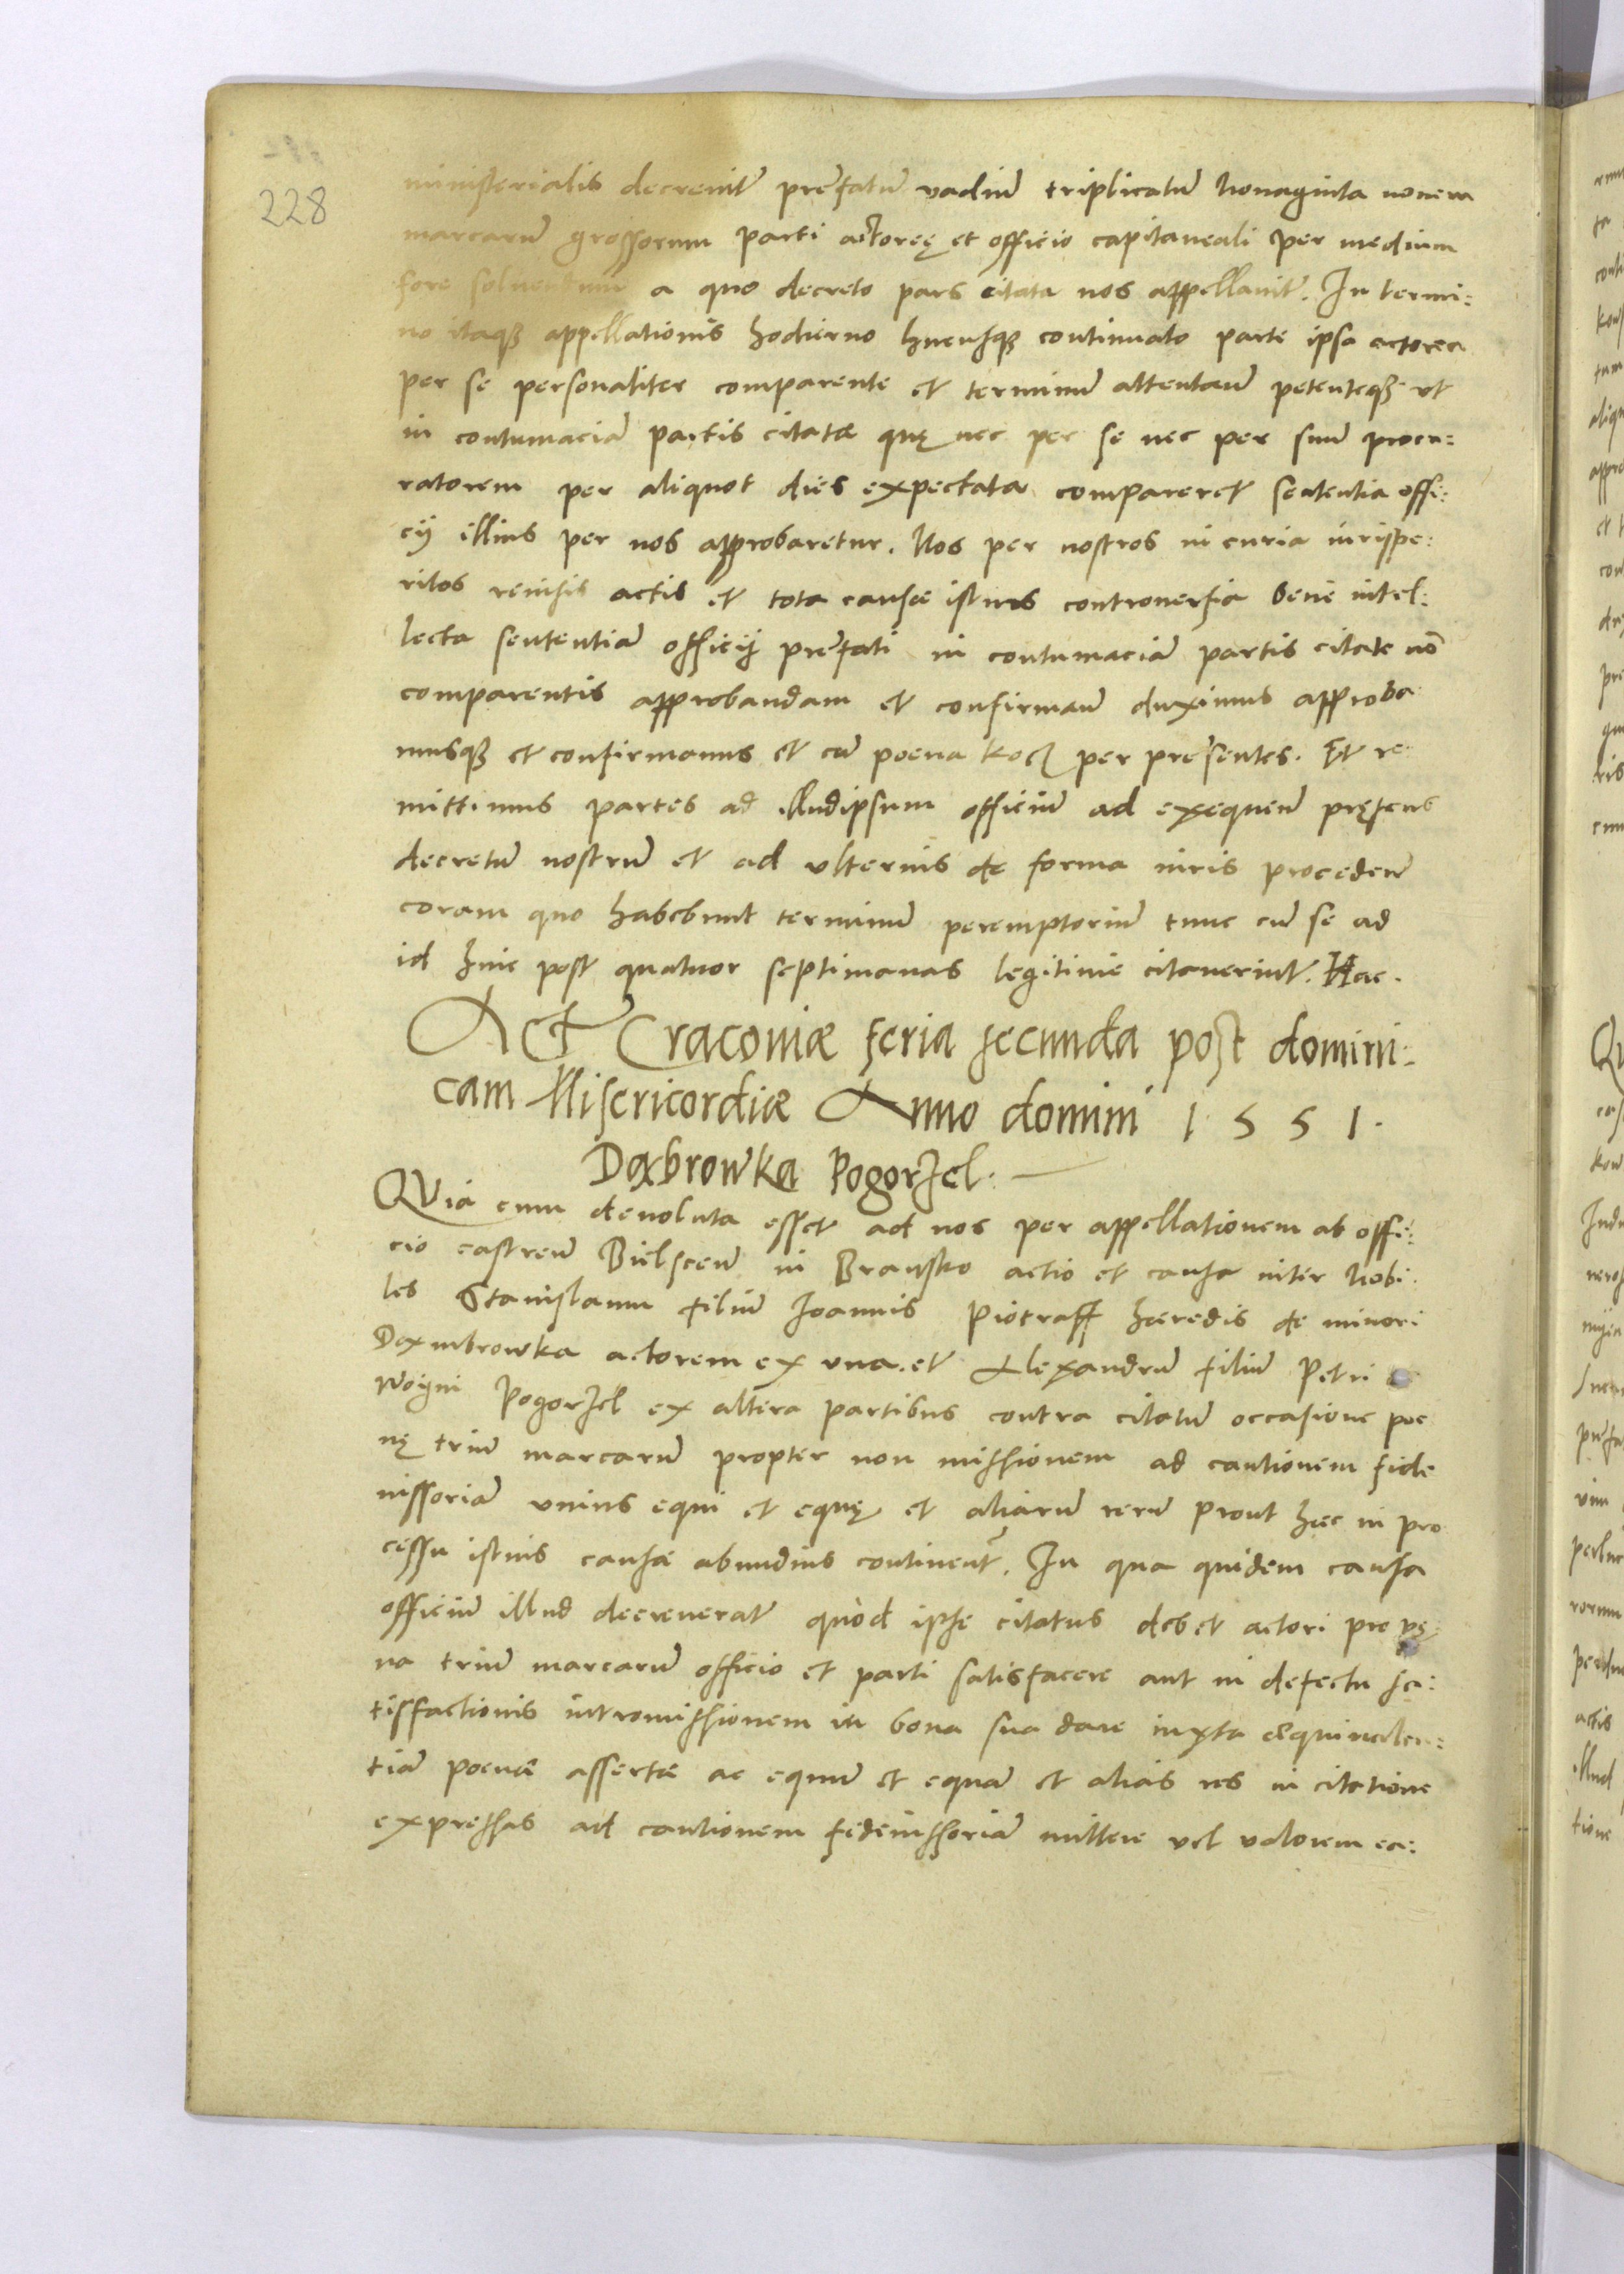 228
ministerialis decrevit prefatū vadiū triplicatū Nonaginta novem
marcarū grossorum parti actoreę et officio capitaneali per medium
fore solvendum a quo decreto pars citata nos appellavit. In termi:
no itaqꝫ appellationis hodierno hucusqꝫ continuato parte ipsa actorea
per se personaliter comparente et terminū attentāū petenteqꝫ ut
in contumaciā partis citatæ quę nec per se nec per suū procu:
ratorem per aliquot dies expectata compareret sententia offi:
cij illius per nos approbaretur. Nos per nostros in curia iurispe:
ritos revisis actis et tota causæ istius controversia bene intel:
lecta sententiā officij prefati in contumaciā partis citate nō
comparentis approbandam et confirmaū duximus approba
musqꝫ et confirmamus et cū poena kocz per presentes. Et re
mittimus partes ad illudipsum officiū ad exequeñ pręsens
decretū nostrū et ad ulterius de forma iuris procedeñ
coram quo habebunt terminū peremptoriū tunc cū se ad
id hinc post quatuor septimanas legitime citaverint. Hac.
Act Cracoviæ feria secunda post domini:
cam Misericordiæ Anno domini 1551.
Dąbrowka Pogorzel.
QVia cum devoluta esset ad nos per appellationem ab offi:
cio castreñ Bielsceñ in Bransko actio et causa inter Nobi:
les Stanislaum filiū Joannis Piotrass hæredis de minori
Dąmbrowka actorem ex una. et Alexandrū filiū Petri
Woyni Pogorzel ex altera partibus contra citatū occasione poe
nę triū marcarū propter non missionem ad cautionem fide
iussoriā unius equi et equę et aliarū rerū prout hæc in pro
cessu istius causæ abundius continent̃. In qua quidem causa
officiū illud decreverat quòd ipse citatus debet actori pro pę
na triū marcarū officio et parti satisfacere aut in defectu sa:
tisfactionis intromissionem in bona sua dare iuxta æquivalen:
tiā poenæ assertæ ac equū et equā et alias res in citatione
expressas ad cautionem fideiussoriā mittere vel valorem ea: